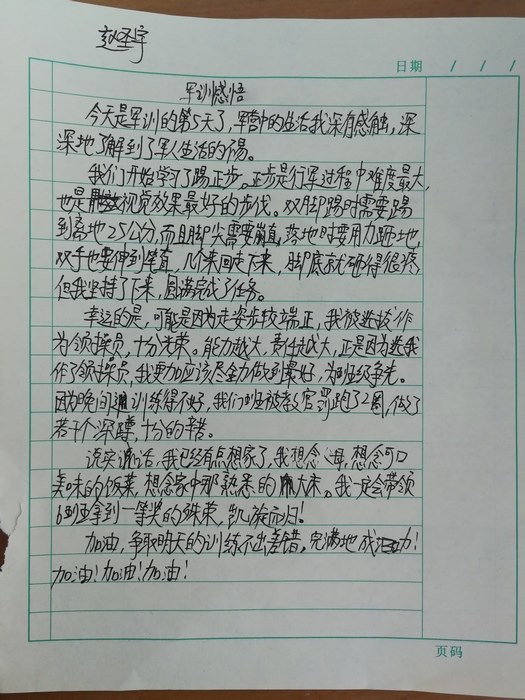 赵圣宇
日期 / / /
军训感悟
今天是军训的第5天了，军营中的生活我深有感触，深
深地了解到了军人生活的不易。
我们开始学习了踢正步。正步是行军过程中难度最大，
也是视觉效果最好的步伐。双脚踢时需要踢
到离地25公分，而且脚尖需要崩直，落地时要用力跺地，
双手也要伸到笔直，几个来回走下来，脚底就砸得很疼
但我坚持了下来，圆满完成了任务。
幸运的是，可能是因为走姿步较端正，我被选拔作
为领操员，十分光荣。能力越大，责任越大，正是因为选我
作了领操员，我更加应该尽全力做到最好，为班级争光。
因为晚间训练得不好，我们班被教官罚跑了2圈，做了
若干个深蹲，十分的辛苦。
说实话，我已经有点想家了，我想念父母，想念可口
美味的饭菜，想念家中那熟悉的大床。我一定会带领
6班拿到一等奖的殊荣，凯旋而归！
加油，争取明天的训练不出差错，完满地成功！
加油！加油！加油！
页码